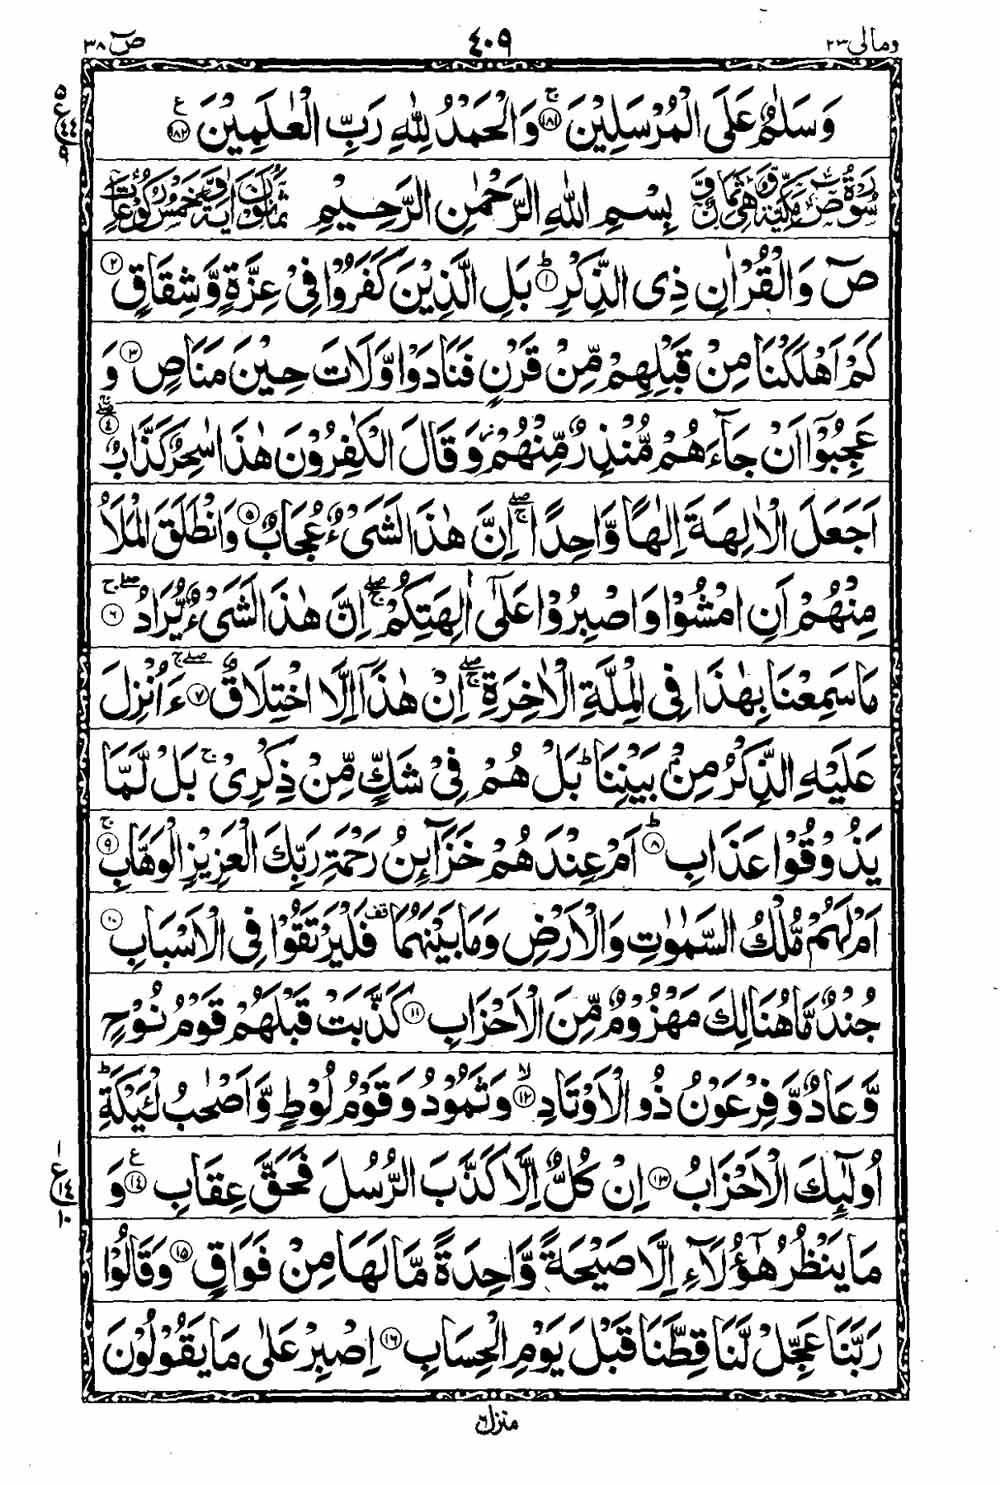 ومالی ۲۳ ۴۰۹ صٓ ۳۸
وَسَلٰمٌ عَلَى الْمُرْسَلِيْنَ ۚ‏﴿۱۸۱﴾ وَالْحَمْدُ لِلّٰهِ رَبِّ الْعٰلَمِيْنَ ﴿۱۸۲﴾ ع
بِسْمِ اللّٰهِ الرَّحْمٰنِ الرَّحِيْمِ
صٓ وَالْقُرْاٰنِ ذِى الذِّكْرِ ؕ﴿۱﴾ بَلِ الَّذِيْنَ كَفَرُوْا فِىْ عِزَّةٍ وَّشِقَاقٍ ﴿۲﴾
كَمْ اَهْلَكْنَا مِنْ قَبْلِهِمْ مِّنْ قَرْنٍ فَنَادَوْا وَّلَاتَ حِيْنَ مَنَاصٍ ﴿۳﴾ وَ
عَجِبُوْٓا اَنْ جَآءَهُمْ مُّنْذِرٌ مِّنْهُمْ ۫ وَقَالَ الْكٰفِرُوْنَ هٰذَا سٰحِرٌ كَذَّابٌ ۖۚ﴿۴﴾
اَجَعَلَ الْاٰلِهَةَ اِلٰهًا وَّاحِدًا ۖۚ اِنَّ هٰذَا لَشَىْءٌ عُجَابٌ ﴿۵﴾ وَانْطَلَقَ الْمَلَاُ
مِنْهُمْ اَنِ امْشُوْا وَاصْبِرُوْا عَلٰٓى اٰلِهَتِكُمْ ۖۚ اِنَّ هٰذَا لَشَىْءٌ يُّرَادُ ۖۚ﴿۶﴾
مَا سَمِعْنَا بِهٰذَا فِى الْمِلَّةِ الْاٰخِرَةِ ۖۚ اِنْ هٰذَآ اِلَّا اخْتِلَاقٌ ۖۚ﴿۷﴾ ءَاُنْزِلَ
عَلَيْهِ الذِّكْرُ مِنْۢ بَيْنِنَا ؕ بَلْ هُمْ فِىْ شَكٍّ مِّنْ ذِكْرِىْ ۚ بَلْ لَّمَّا
يَذُوْقُوْا عَذَابِ ؕ﴿۸﴾ اَمْ عِنْدَهُمْ خَزَآئِنُ رَحْمَةِ رَبِّكَ الْعَزِيْزِ الْوَهَّابِ ۚ﴿۹﴾
اَمْ لَهُمْ مُّلْكُ السَّمٰوٰتِ وَالْاَرْضِ وَمَا بَيْنَهُمَا قف فَلْيَرْتَقُوْا فِى الْاَسْبَابِ ﴿۱۰﴾
جُنْدٌ مَّا هُنَالِكَ مَهْزُوْمٌ مِّنَ الْاَحْزَابِ ﴿۱۱﴾ كَذَّبَتْ قَبْلَهُمْ قَوْمُ نُوْحٍ
وَّعَادٌ وَّفِرْعَوْنُ ذُو الْاَوْتَادِ ۙ﴿۱۲﴾ وَثَمُوْدُ وَقَوْمُ لُوْطٍ وَّاَصْحٰبُ لْئَيْكَةِ ؕ
اُولٰٓئِكَ الْاَحْزَابُ ﴿۱۳﴾ اِنْ كُلٌّ اِلَّا كَذَّبَ الرُّسُلَ فَحَقَّ عِقَابِ ﴿۱۴﴾ ع وَ
مَا يَنْظُرُ هٰٓؤُلَآءِ اِلَّا صَيْحَةً وَّاحِدَةً مَّا لَهَا مِنْ فَوَاقٍ ﴿۱۵﴾ وَقَالُوْا
رَبَّنَا عَجِّلْ لَّنَا قِطَّنَا قَبْلَ يَوْمِ الْحِسَابِ ﴿۱۶﴾ اِصْبِرْ عَلٰى مَا يَقُوْلُوْنَ
منزل ۶